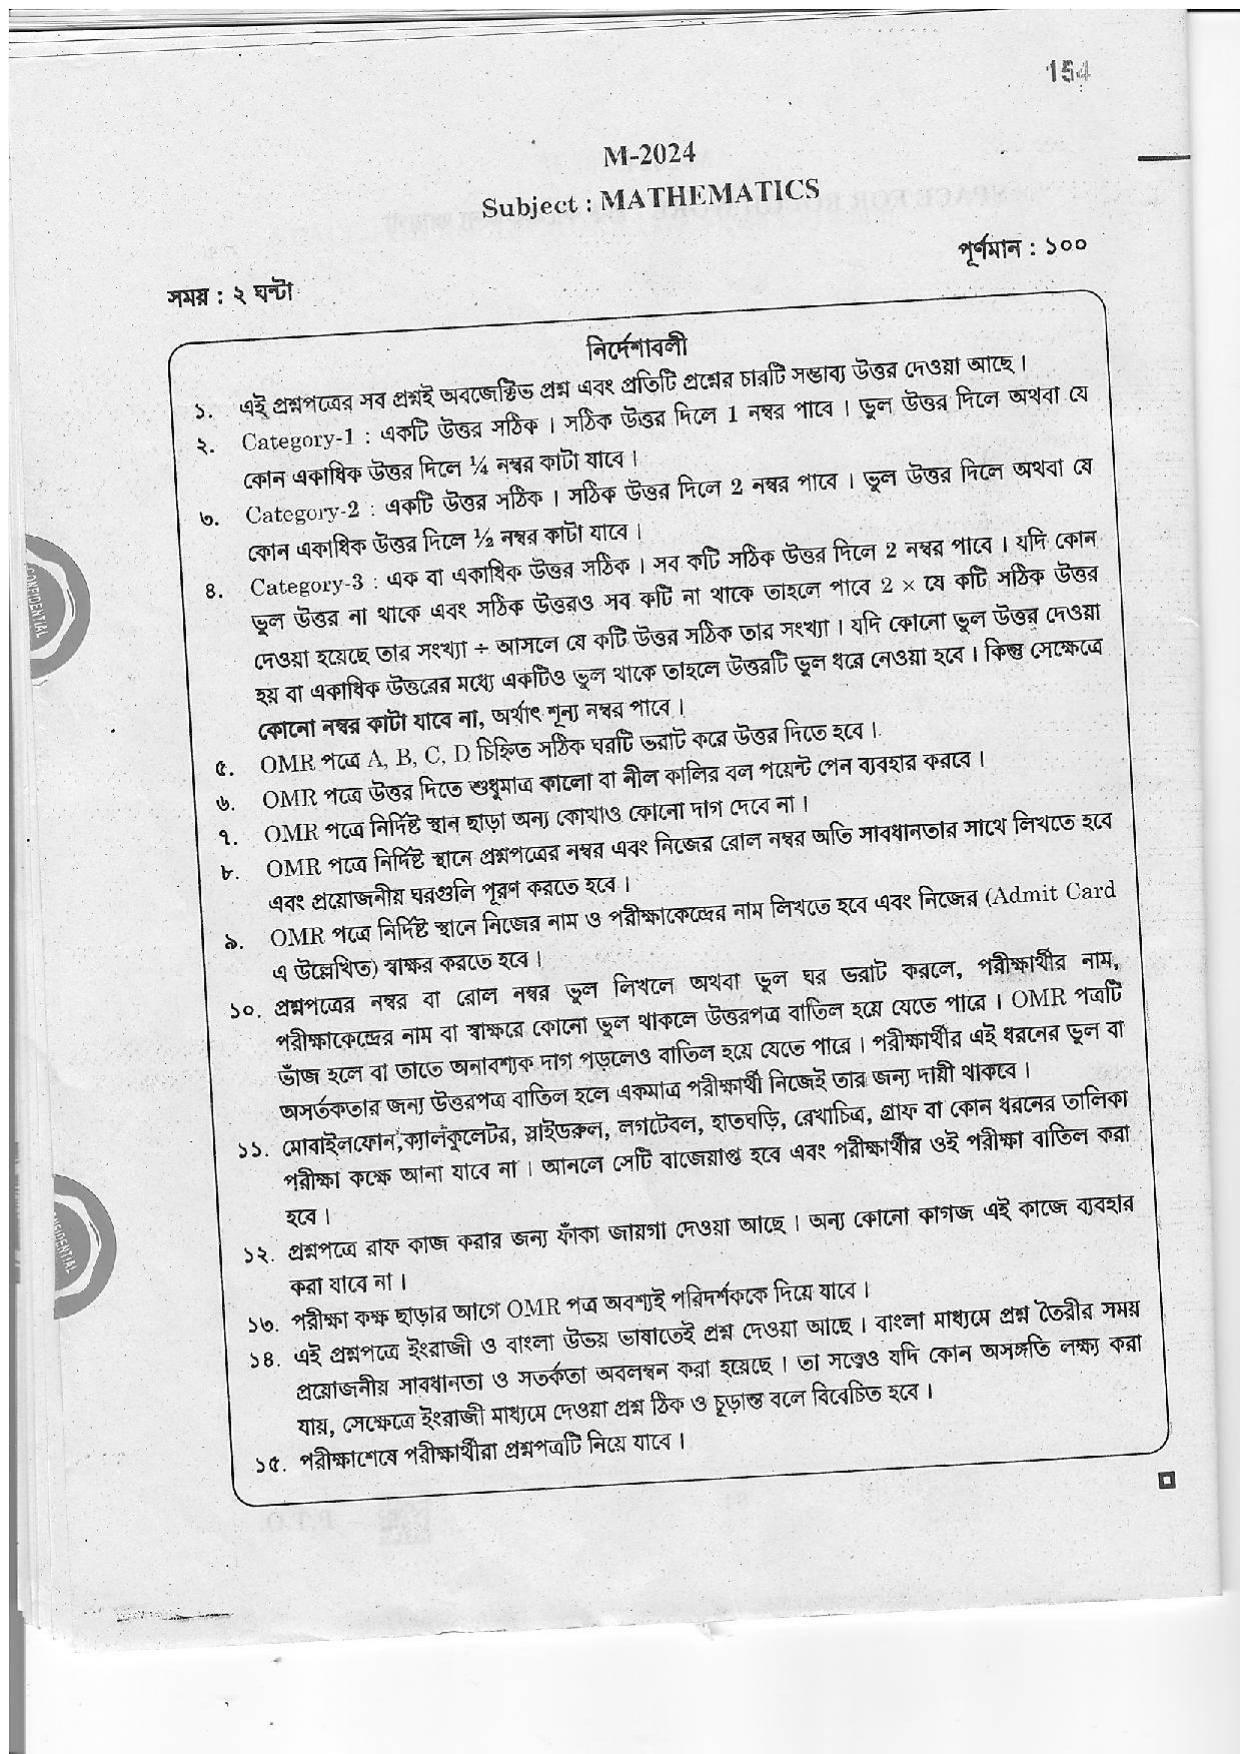 154
M-2024
Subject : MATHEMATICS
পূর্ণমান : ১০০
সময় : ২ ঘন্টা
নির্দেশাবলী
১. এই প্রশ্নপত্রের সব প্রশ্নই অবজেক্টিভ প্রশ্ন এবং প্রতিটি প্রশ্নের চারটি সম্ভাব্য উত্তর দেওয়া আছে।
২. Category-1 : একটি উত্তর সঠিক। সঠিক উত্তর দিলে 1 নম্বর পাবে। ভুল উত্তর দিলে অথবা যে
কোন একাধিক উত্তর দিলে ¼ নম্বর কাটা যাবে।
৩. Category-2 : একটি উত্তর সঠিক। সঠিক উত্তর দিলে 2 নম্বর পাবে। ভুল উত্তর দিলে অথবা যে
কোন একাধিক উত্তর দিলে ½ নম্বর কাটা যাবে।
৪. Category-3 : এক বা একাধিক উত্তর সঠিক। সব কটি সঠিক উত্তর দিলে 2 নম্বর পাবে। যদি কোন
ভুল উত্তর না থাকে এবং সঠিক উত্তরও সব কটি না থাকে তাহলে পাবে 2 × যে কটি সঠিক উত্তর
দেওয়া হয়েছে তার সংখ্যা ÷ আসলে যে কটি উত্তর সঠিক তার সংখ্যা। যদি কোনো ভুল উত্তর দেওয়া
হয় বা একাধিক উত্তরের মধ্যে একটিও ভুল থাকে তাহলে উত্তরটি ভুল ধরে নেওয়া হবে। কিন্তু সেক্ষেত্রে
কোনো নম্বর কাটা যাবে না, অর্থাৎ শূন্য নম্বর পাবে।
৫. OMR পত্রে A, B, C, D চিহ্নিত সঠিক ঘরটি ভরাট করে উত্তর দিতে হবে।
৬. OMR পত্রে উত্তর দিতে শুধুমাত্র কালো বা নীল কালির বল পয়েন্ট পেন ব্যবহার করবে।
৭. OMR পত্রে নির্দিষ্ট স্থান ছাড়া অন্য কোথাও কোনো দাগ দেবে না।
৮. OMR পত্রে নির্দিষ্ট স্থানে প্রশ্নপত্রের নম্বর এবং নিজের রোল নম্বর অতি সাবধানতার সাথে লিখতে হবে
এবং প্রয়োজনীয় ঘরগুলি পূরণ করতে হবে।
৯. OMR পত্রে নির্দিষ্ট স্থানে নিজের নাম ও পরীক্ষাকেন্দ্রের নাম লিখতে হবে এবং নিজের (Admit Card
এ উল্লেখিত) স্বাক্ষর করতে হবে।
১০. প্রশ্নপত্রের নম্বর বা রোল নম্বর ভুল লিখলে অথবা ভুল ঘর ভরাট করলে, পরীক্ষার্থীর নাম,
পরীক্ষাকেন্দ্রের নাম বা স্বাক্ষরে কোনো ভুল থাকলে উত্তরপত্র বাতিল হয়ে যেতে পারে। OMR পত্রটি
ভাঁজ হলে বা তাতে অনাবশ্যক দাগ পড়লেও বাতিল হয়ে যেতে পারে। পরীক্ষার্থীর এই ধরনের ভুল বা
অসর্তকতার জন্য উত্তরপত্র বাতিল হলে একমাত্র পরীক্ষার্থী নিজেই তার জন্য দায়ী থাকবে।
১১. মোবাইলফোন, ক্যালকুলেটর, স্লাইডরুল, লগটেবল, হাতঘড়ি, রেখাচিত্র, গ্রাফ বা কোন ধরনের তালিকা
পরীক্ষা কক্ষে আনা যাবে না। আনলে সেটি বাজেয়াপ্ত হবে এবং পরীক্ষার্থীর ওই পরীক্ষা বাতিল করা
হবে।
১২. প্রশ্নপত্রে রাফ কাজ করার জন্য ফাঁকা জায়গা দেওয়া আছে। অন্য কোনো কাগজ এই কাজে ব্যবহার
করা যাবে না।
১৩. পরীক্ষা কক্ষ ছাড়ার আগে OMR পত্র অবশ্যই পরিদর্শককে দিয়ে যাবে।
১৪. এই প্রশ্নপত্রে ইংরাজী ও বাংলা উভয় ভাষাতেই প্রশ্ন দেওয়া আছে। বাংলা মাধ্যমে প্রশ্ন তৈরীর সময়
প্রয়োজনীয় সাবধানতা ও সতর্কতা অবলম্বন করা হয়েছে। তা সত্ত্বেও যদি কোন অসঙ্গতি লক্ষ্য করা
যায়, সেক্ষেত্রে ইংরাজী মাধ্যমে দেওয়া প্রশ্ন ঠিক ও চূড়ান্ত বলে বিবেচিত হবে।
১৫. পরীক্ষাশেষে পরীক্ষার্থীরা প্রশ্নপত্রটি নিয়ে যাবে।
CONFIDENTIAL